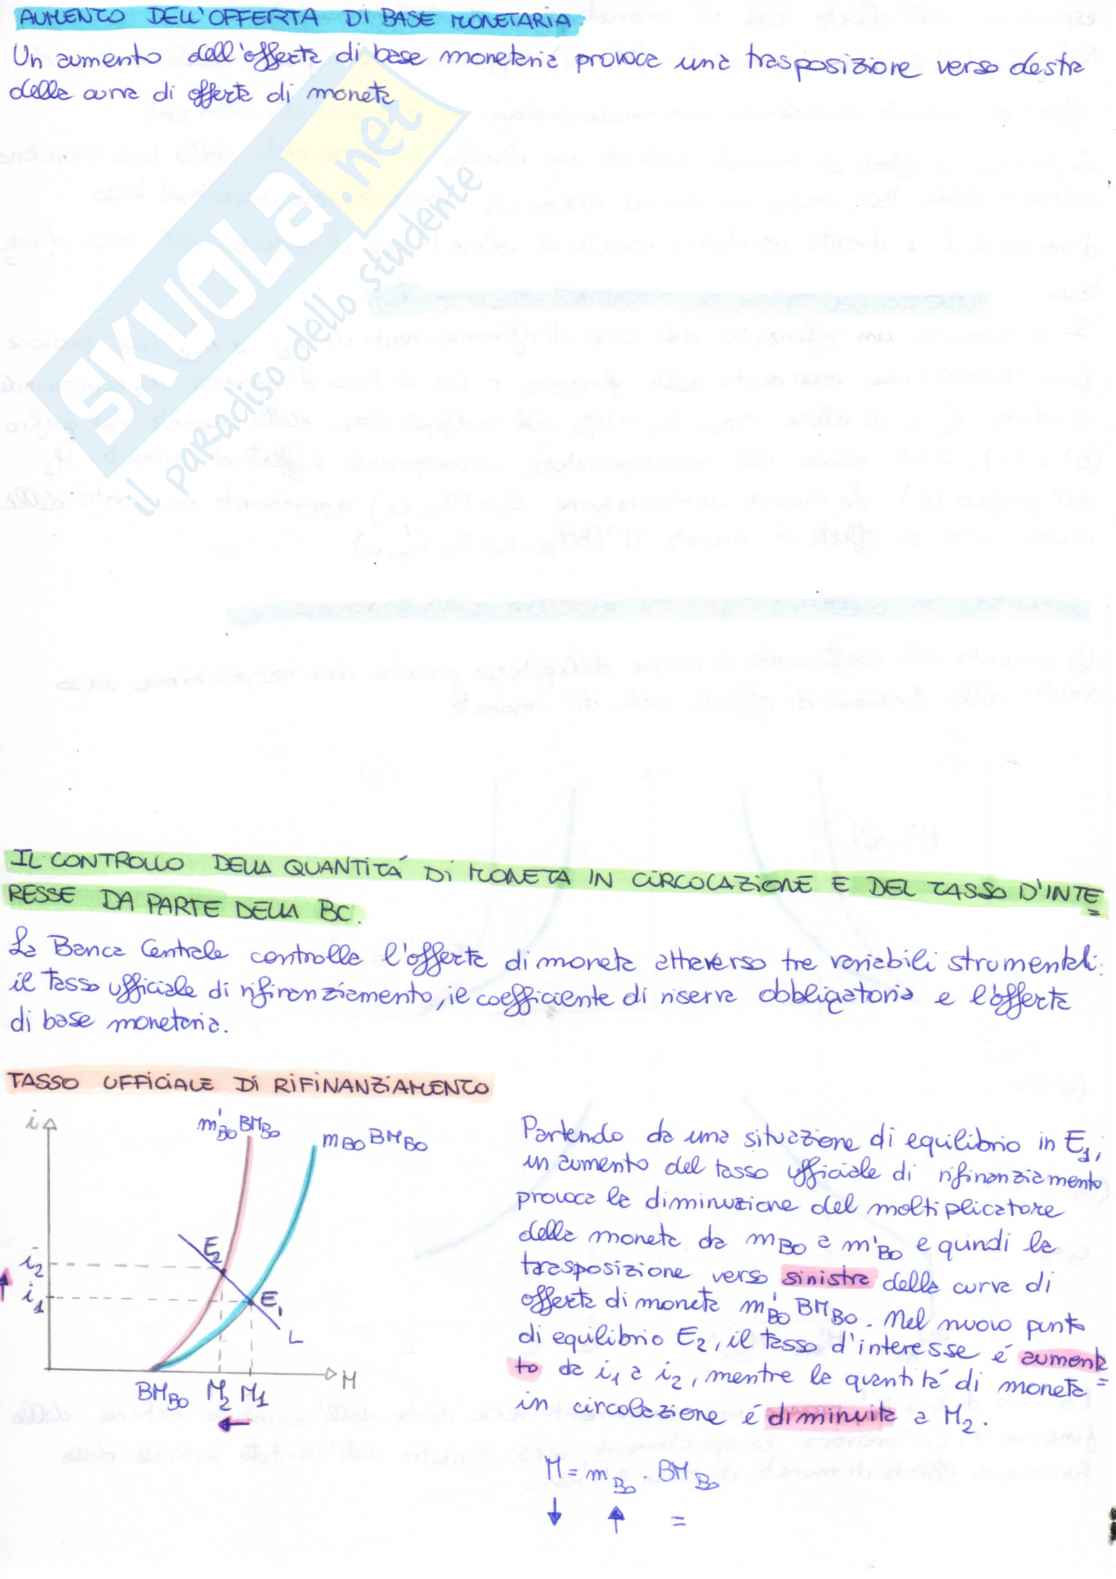 AUMENTO DELL'OFFERTA DI BASE MONETARIA:
Un aumento dell'offerta di base monetaria provoca una trasposizione verso destra
della curva di offerta di moneta
SKUOLA.net
il paradiso dello studente
IL CONTROLLO DELLA QUANTITÁ DI MONETA IN CIRCOLAZIONE E DEL TASSO D'INTE=
RESSE DA PARTE DELLA BC.
La Banca Centrale controlla l'offerta di moneta attraverso tre variabili strumentali:
il tasso ufficiale di rifinanziamento, il coefficiente di riserva obbligatoria e l'offerta
di base monetaria.
TASSO UFFICIALE DI RIFINANZIAMENTO
i
m'BO BMBO
mBO BMBO
E2
i2
i1
E1
L
M
BMBO M2 M1
Partendo da una situazione di equilibrio in E1,
un aumento del tasso ufficiale di rifinanziamento
provoca la diminuzione del moltiplicatore
della moneta da mBO a m'BO e quindi la
trasposizione verso sinistra della curva di
offerta di moneta m'BO BMBO. Nel nuovo punto
di equilibrio E2, il tasso d'interesse é aumenta=
to da i1 a i2, mentre la quantitá di moneta
in circolazione é diminuita a M2.
M = mBO · BMBO
↓ ↑ =